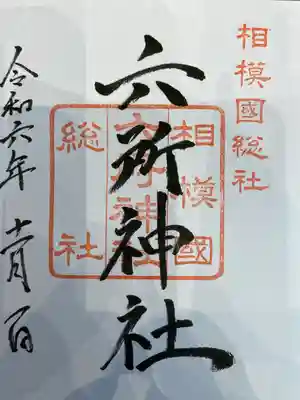 相模國総社
六所神社
相模國
六所神社
総社
令和六年十一月一日